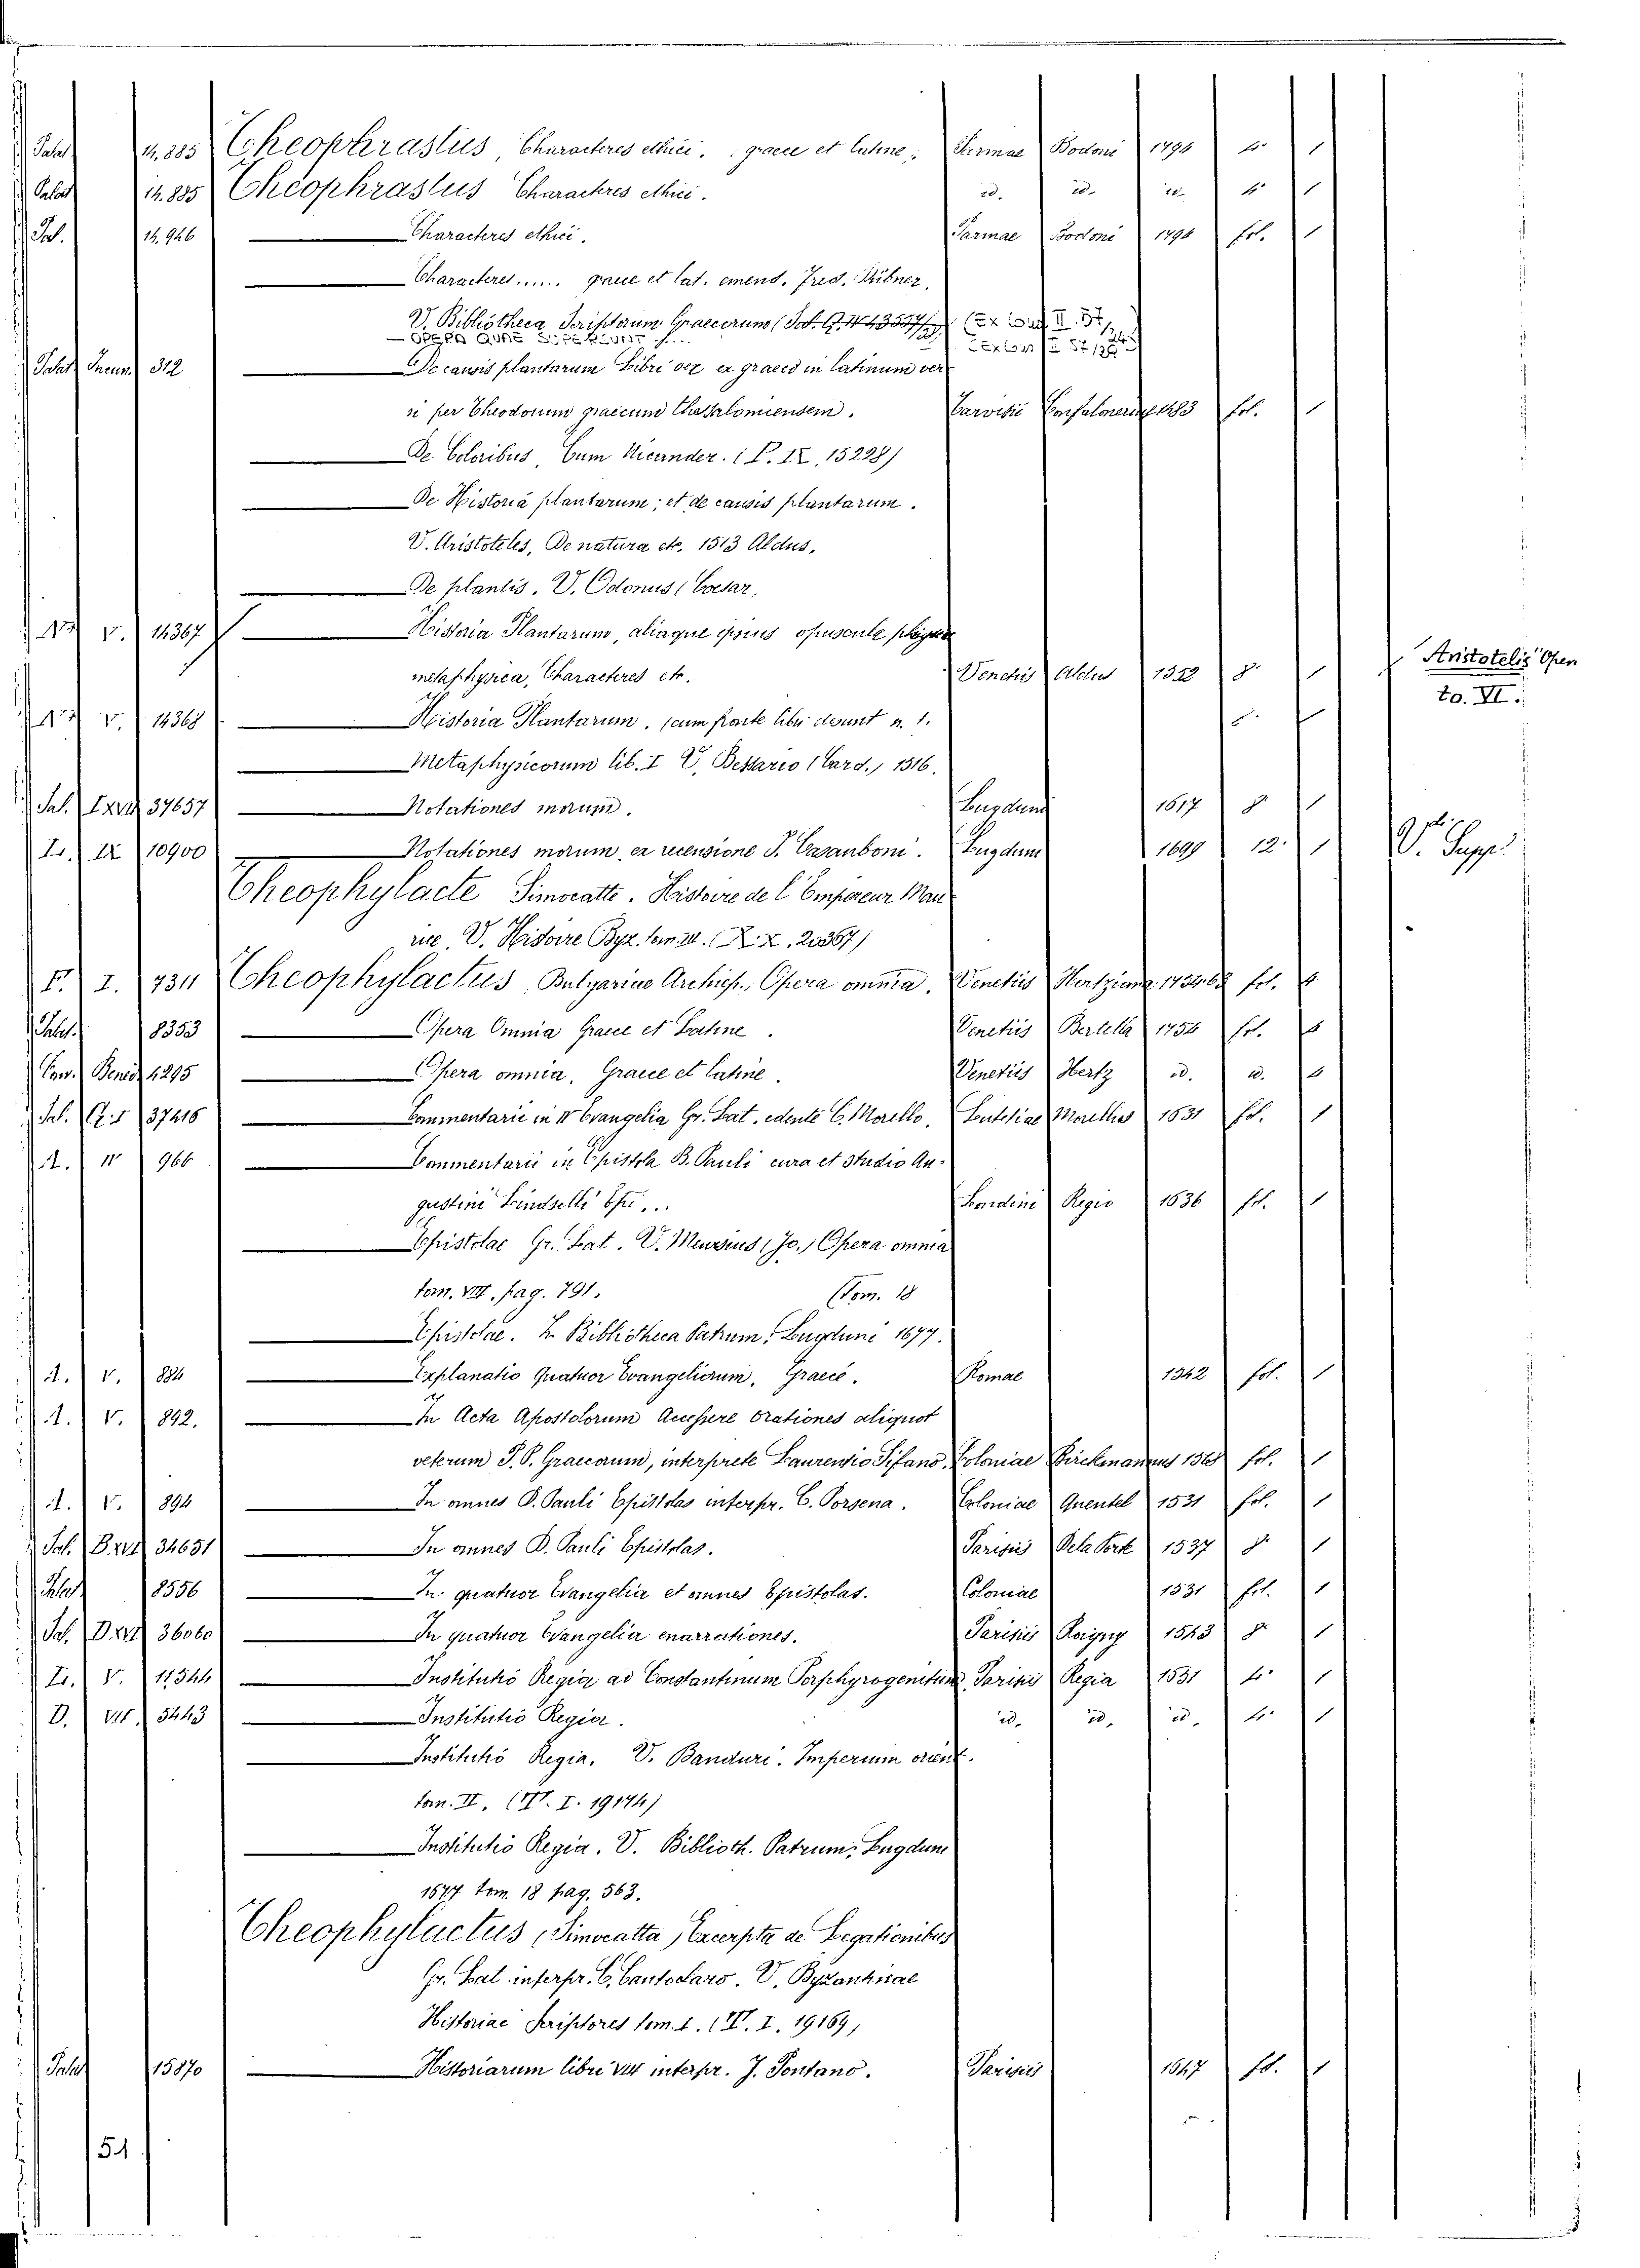 Palat 14.885 Theophrastus, Characteres ethici. graece et latine, Parmae Bodoni 1794 4° 1
Palat 14.885 Theophrastus Characteres ethici. id. id. id. 4° 1
Pal. 14.946 Characteres ethici. Parmae Bodoni 1794 fol. 1
Characteres...... graece et lat. emend. Fred. Dübner.
V. Bibliotheca Scriptorum Graecorum
Palat Incun. 312 De causis plantarum Libri sex ex graeco in latinum ver
si per Theodorum graecum Thessaloniensem. Tarvisii Confalonerius 1483 fol. 1
De Coloribus, Cum Nicander. (P. IX. 15228)
De Historia plantarum; et de causis plantarum.
V. Aristoteles, De natura etc. 1513 Aldus,
De plantis. V. Odonus (Coesar.
V. 14367 Historia Plantarum, aliaque ipsius opuscula
metaphysica, Characteres etc. Venetiis Aldus 1552 8° 1 Aristotelis Oper
to. VI.
V. 14368 Historia Plantarum. (cum parte libri desunt n. 1.
Metaphysicorum lib. I V. Bessario (Card., 1516.
Sal. 37657 Notationes morum. Lugduni 1617 8° 1
L. IX 10900 Notationes morum ex recensione I. Casauboni. Lugduni 1699 12. 1 V. Suppl.
Theophylacte Simocatte. Histoire de l'Empereur Mau
rice, V. Histoire Byz. (X. X. 20367)
F. I. 7311 Theophylactus, Bulgariae Archiep., Opera omnia. Venetiis Hertziana 1754.63 fol. 4
Palat. 8353 Opera Omnia Graece et Latine. Venetiis Bertella 1754 fol. 4
Con. Bened. 4295 Opera omnia. Graece et latine. Venetiis Hertz id. id. 4
Sal. 37416 Commentarii in IV Evangelia Gr. Lat. edente C. Morello. Lutetiae Morellus 1631 fol. 1
A. IV 966 Commentarii in Epistola B. Pauli cura et studio Au-
gustini Lindselli Londini Regio 1636 fol. 1
Epistolae Gr. Lat. V. Meursius (Jo.) Opera omnia
tom. VIII. pag. 791. (Tom. 18
Epistolae. In Bibliotheca Patrum, Lugduni 1677.
A. V. 884 Explanatio Quatuor Evangeliorum, Graece. Romae 1542 fol. 1
A. V. 892. In Acta Apostolorum Accessere orationes aliquot
veterum S. P. Graecorum, interprete Laurentio Sifano. Coloniae Birckmannus 1568 fol. 1
A. V. 894 In omnes D. Pauli Epistolas interpr. C. Porsena. Coloniae Quentel 1531 fol. 1
Sal. 34651 In omnes D. Pauli Epistolas. Parisiis De la Porte 1537 8° 1
Palat 8556 In quatuor Evangelia et omnes Epistolas. Coloniae 1531 fol. 1
Sal. 36060 In quatuor Evangelia enarrationes. Parisiis Roigny 1543 8° 1
L. V. 11544 Institutio Regia ad Constantinum Porphyrogenitum. Parisiis Regia 1651 4° 1
D. VII. 5443 Institutio Regia. id. id. id. 4° 1
Institutio Regia. V. Banduri. Imperium orient.
tom. II. (VI. I. 19174)
Institutio Regia. V. Biblioth. Patrum, Lugdum
1677 tom. 18 pag. 563.
Theophylactus (Simocatta) Excerpta de Legationibus
Gr. Lat. interpr. C. Cantoclaro. V. Byzantinae
Historiae Scriptores tom. 1. (VI. I. 19169)
Palat 15870 Historiarum libri VIII interpr. J. Pontano. Parisiis 1647 fol. 1
51